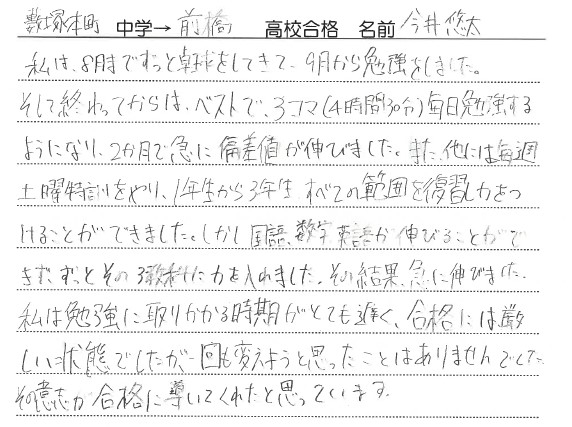 藪塚本町 中学→ 前橋 高校合格 名前 今井悠太
私は、8月までずっと卓球をしてきて、9月から勉強をしました。
そして終わってからは、ベストで、3コマ(4時間30分)毎日勉強する
ようになり、2か月で急に偏差値が伸びました。また、他には毎週
土曜特訓をやり、1年生から3年生すべての範囲を復習し力をつ
けることができました。しかし国語、数学、英語が伸びることがで
きず、ずっとその3教科に力を入れました。その結果、急に伸びました。
私は勉強に取りかかる時期がとても遅く、合格には厳
しい状態でしたが、一回も変えようと思ったことはありませんでした。
その意志が合格に導いてくれたと思っています。